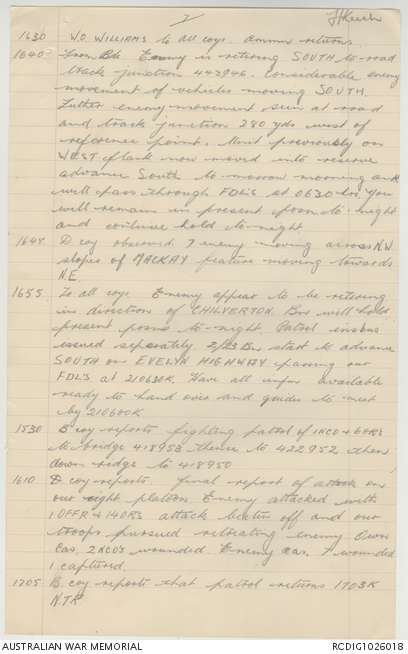 2
1630 W.O. WILLIAMS to all coys. ammn returns.
1640 From Bde Enemy is retiring SOUTH to road
track junction 443946. Considerable enemy
movement of vehicles moving SOUTH.
Further enemy movement seen at road
and track junction 280 yds west of
reference point. Unit previously on
WEST flank now moved into reserve
advance South to-morrow morning and
will pass through FDLs at 0630 hrs. You
will remain in present posn to-night
and continue hold to-night
1645 D coy observed 7 enemy moving across N.W.
slopes of MACKAY feature moving towards
N.E.
1655 To all coys. Enemy appear to be retiring
in direction of CHILVERTON. Bn will hold
present posns to-night. Patrol instns
issued separately. 2/23 Bn start to advance
SOUTH on EVELYN HIGHWAY passing our
FDL's at 210630K. Have all infm available
ready to hand over and guides to meet
by 210600K.
1530 B coy reports fighting patrol of 1 NCO & 6 ORs
to bridge 418958 thence to 422952 then
down ridge to 418950
1610 D coy reports. Final report of attack on
our right platoon. Enemy attacked with
1 OFFR & 14 ORS attack beaten off and our
troops pursued retreating enemy. Own
cas. 2 NCO's wounded. Enemy cas. 7 wounded
1 captured.
1705 B. coy reports that patrol returns 1703K
N.T.R
AUSTRALIAN WAR MEMORIAL
RCDIG1026018